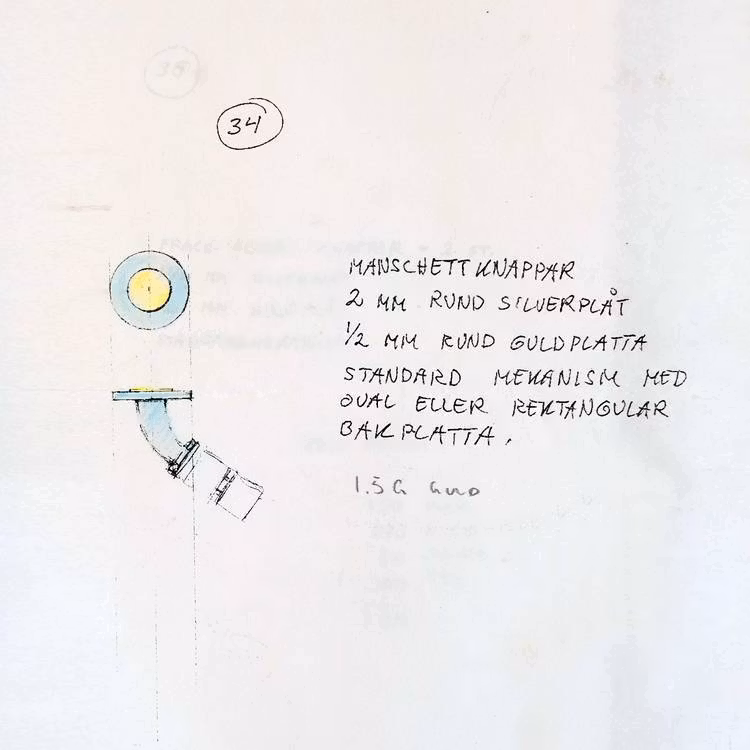 34
MANSCHETTKNAPPAR
2 MM RUND SILVERPLÅT
1/2 MM RUND GULDPLATTA
STANDARD MEKANISM MED
OVAL ELLER REKTANGULAR
BAKPLATTA.
1.5G GULD